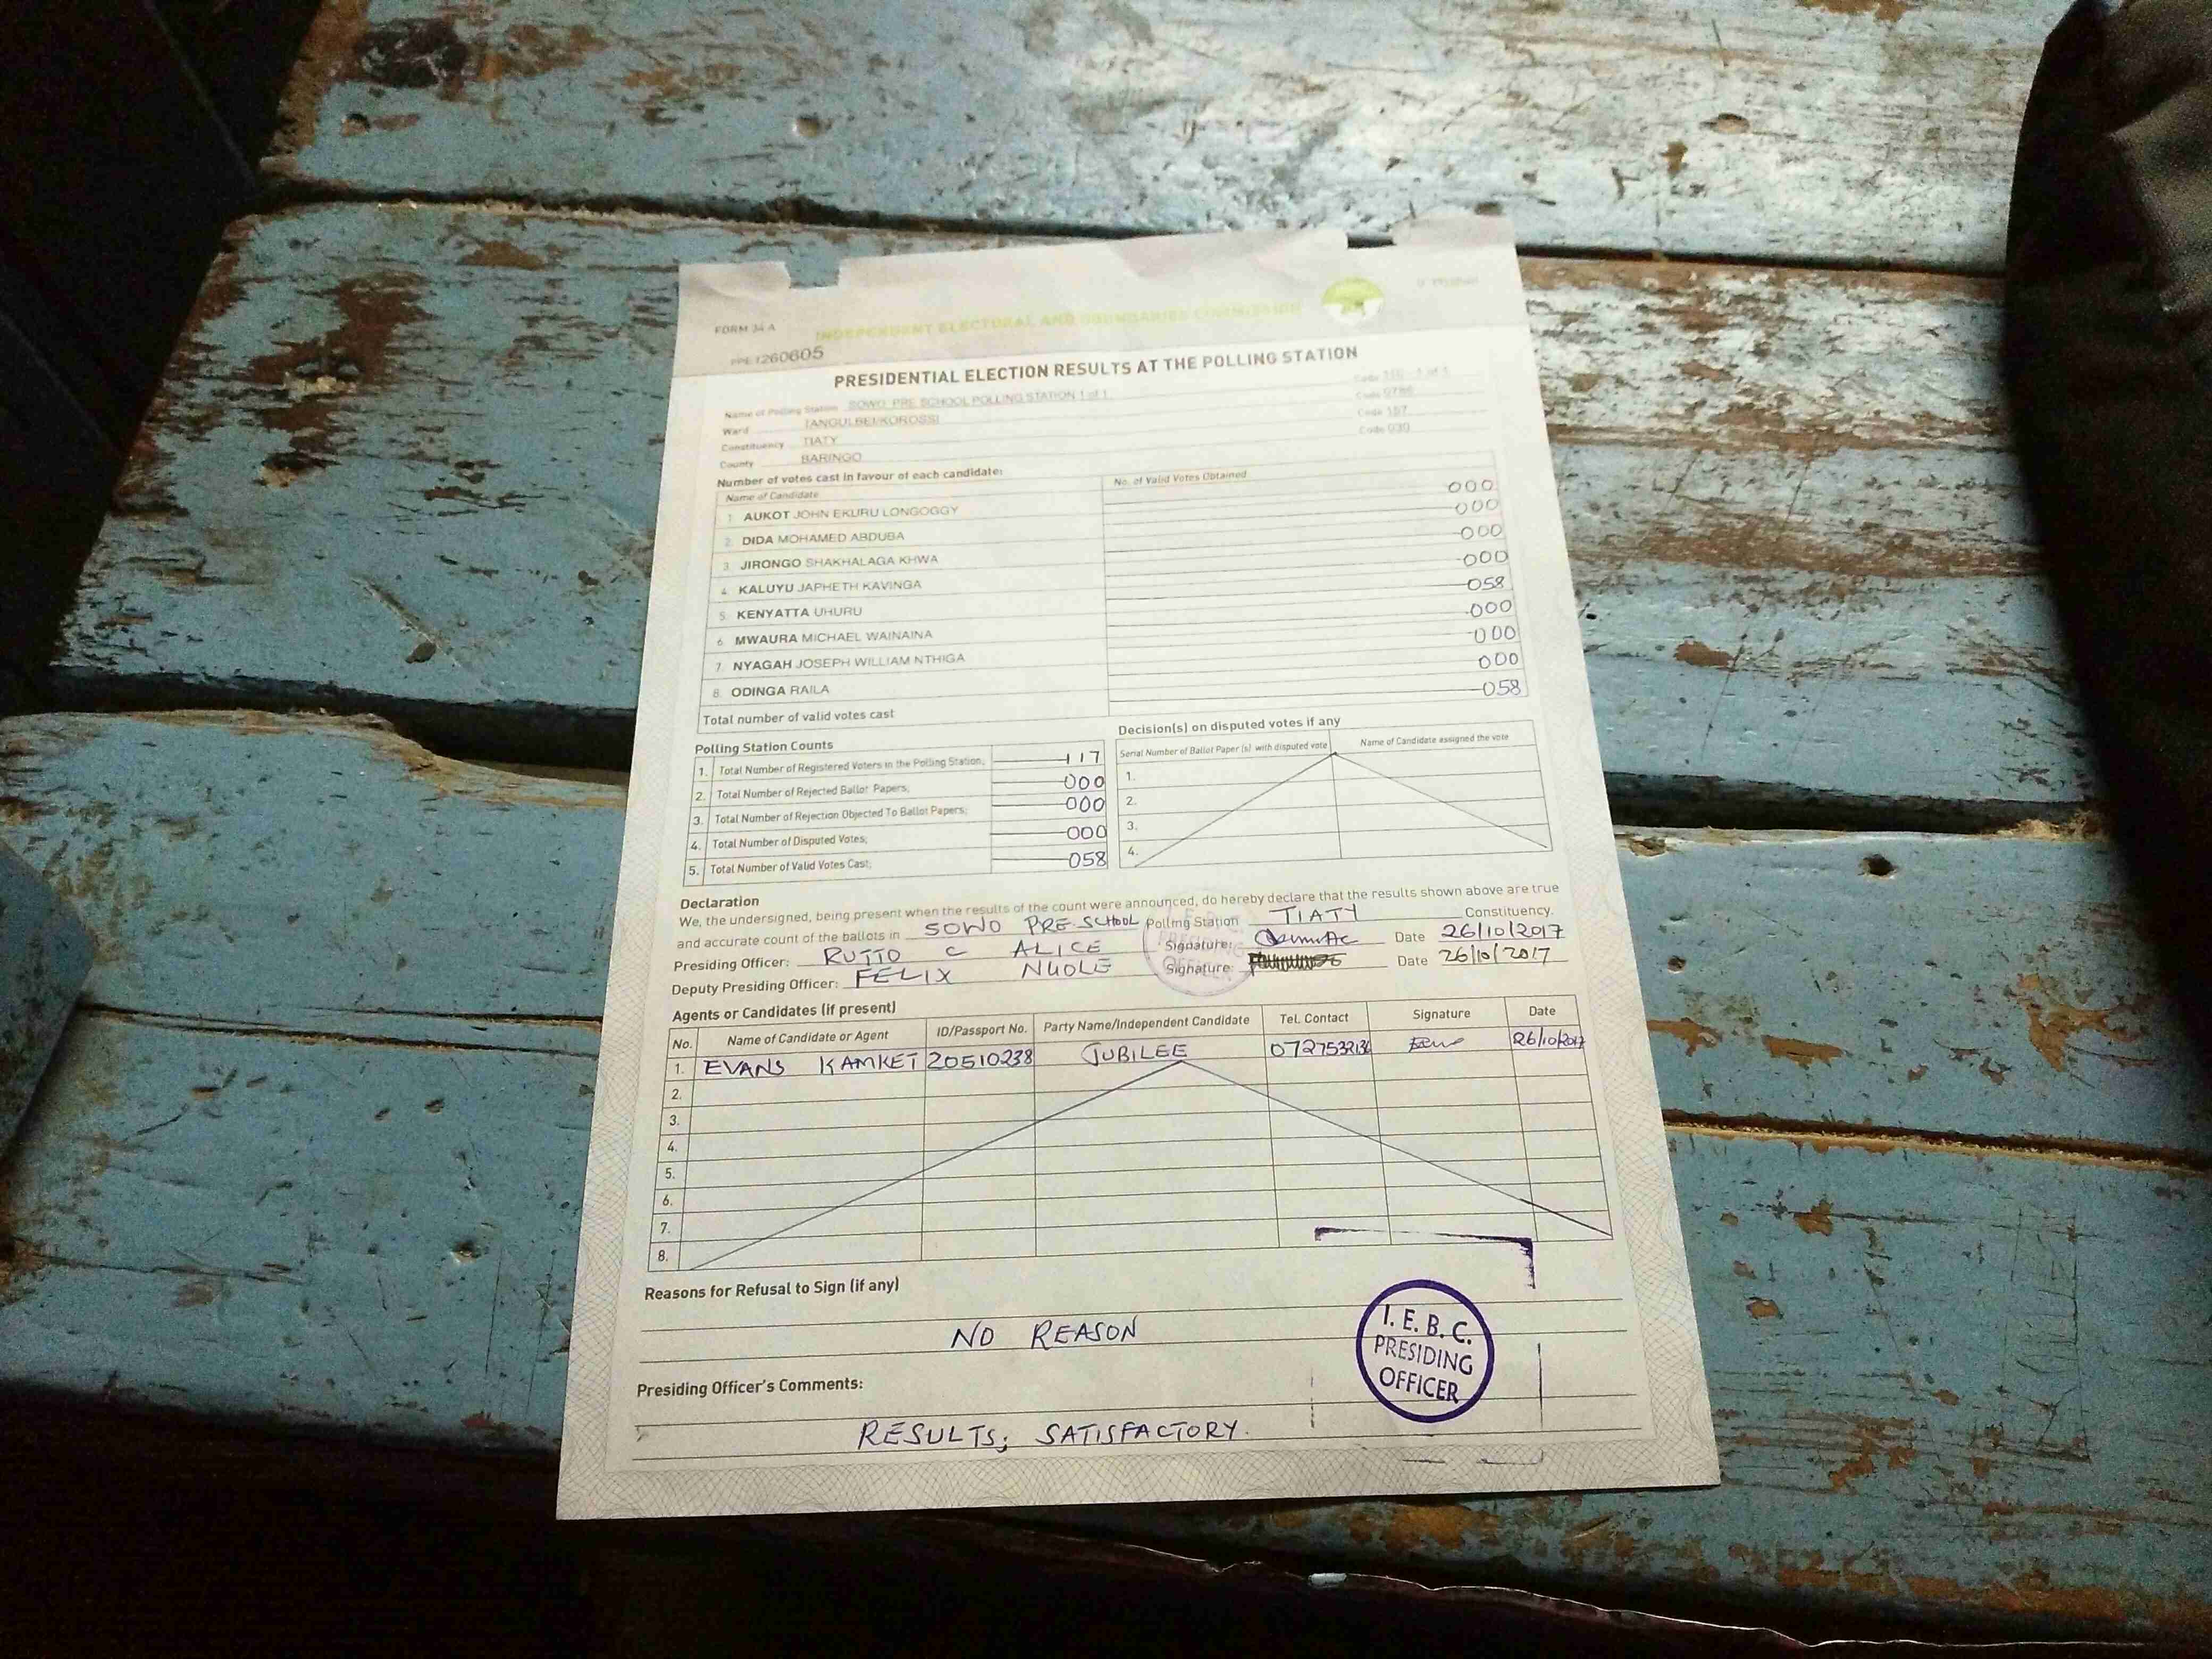 FORM 34 A
INDEPENDENT ELECTORAL AND BOUNDARIES COMMISSION
1260605
PRESIDENTIAL ELECTION RESULTS AT THE POLLING STATION
Name of Polling Station SOWO PRE SCHOOL POLLING STATION 1 of 1
Ward TANGULBEI/KOROSSI Code 0786
Constituency TIATY Code 157
County BARINGO Code 030
Number of votes cast in favour of each candidate:
Name of Candidate No. of Valid Votes Obtained
1. AUKOT JOHN EKURU LONGOGGY 000
2. DIDA MOHAMED ABDUBA 000
3. JIRONGO SHAKHALAGA KHWA 000
4. KALUYU JAPHETH KAVINGA 000
5. KENYATTA UHURU 058
6. MWAURA MICHAEL WAINAINA 000
7. NYAGAH JOSEPH WILLIAM NTHIGA 000
8. ODINGA RAILA 000
Total number of valid votes cast 058
Polling Station Counts
1. Total Number of Registered Voters in the Polling Station; 117
2. Total Number of Rejected Ballot Papers; 000
3. Total Number of Rejection Objected To Ballot Papers; 000
4. Total Number of Disputed Votes; 000
5. Total Number of Valid Votes Cast; 058
Decision(s) on disputed votes if any
Serial Number of Ballot Paper (s) with disputed vote Name of Candidate assigned the vote
1.
2.
3.
4.
Declaration
We, the undersigned, being present when the results of the count were announced, do hereby declare that the results shown above are true
and accurate count of the ballots in SOWO PRE-SCHOOL Polling Station TIATY Constituency.
Presiding Officer: RUTTO C ALICE Signature: Date 26/10/2017
Deputy Presiding Officer: FELIX Signature: Date 26/10/2017
Agents or Candidates (if present)
No. Name of Candidate or Agent ID/Passport No. Party Name/Independent Candidate Tel. Contact Signature Date
1. EVANS KAMKET 20510238 JUBILEE 26/10/2017
2.
3.
4.
5.
6.
7.
8.
Reasons for Refusal to Sign (if any)
NO REASON
I. E. B. C.
PRESIDING
OFFICER
Presiding Officer's Comments:
RESULTS; SATISFACTORY.